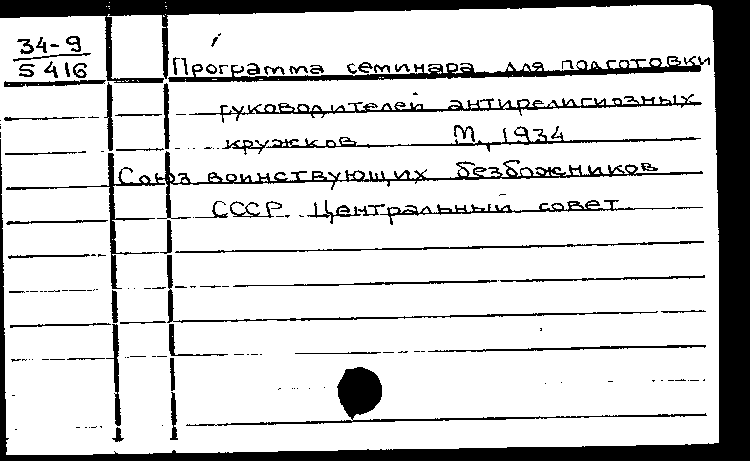 34-9
5416
Программа семинара для подготовки
руководителей антирелигиозных
кружков. М., 1934
Союз воинствующих безбожников
СССР. Центральный совет.